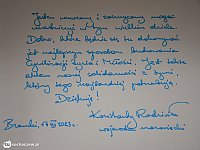 Jestem wzruszony i zaszczycony mogąc
uczestniczyć w tym wielkim dziele
Dobro, które dzieje się tu
jest najlepszym sposobem budowania
Cywilizacji Życia i Miłości. Jest także
aktem naszej solidarności z tymi,
którzy tego najbardziej potrzebują.
Dziękuję!
Konstanty Radziwiłł
wojewoda mazowiecki